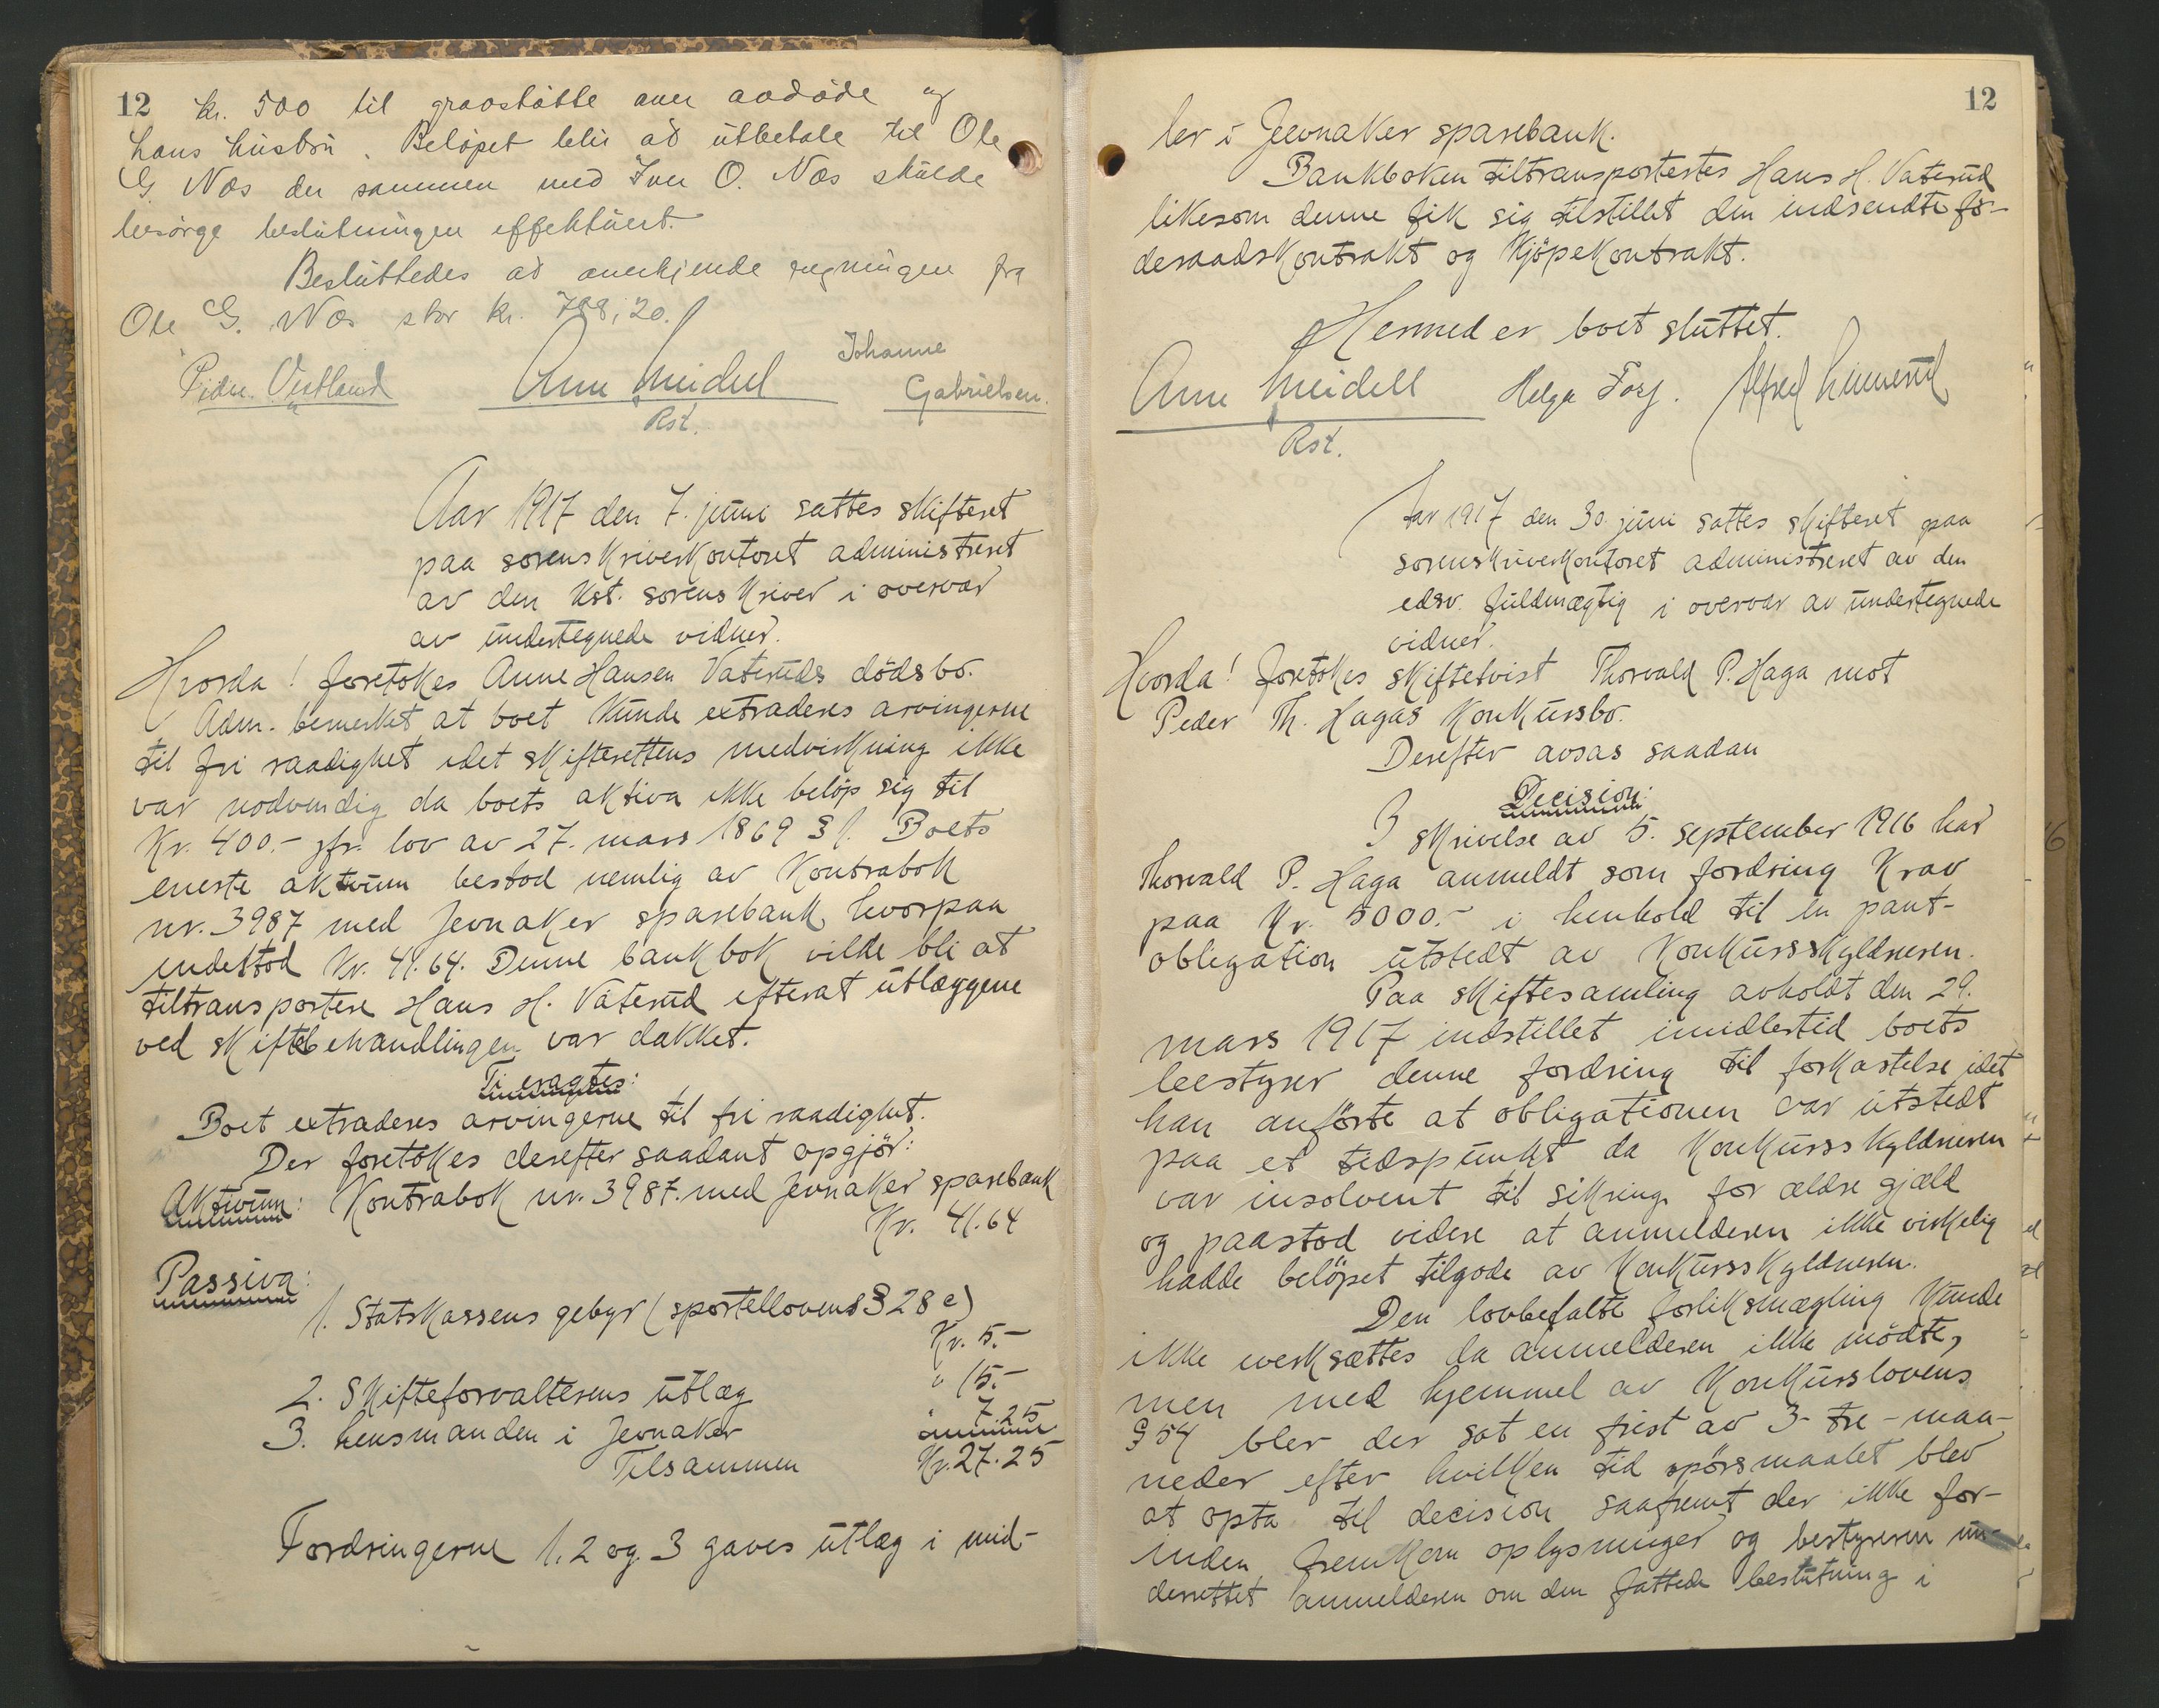 12 kr. 500 til gravstøtte over avdøde og
hans hustru. Beløpet blir at utbetale til Ole
G. Næs der sammen med Iver O. Næs skulde
besørge beslutningen effektuert.
Besluttedes at anerkjende regningen fra
Ole G. Næs stor kr. 788,20.
Johanne
Vestland Arne Meidell Gabrielsen.
Kst.
Aar 1917 den 7. juni sattes skifteret
paa sorenskriverkontoret administreret
av den kst. sorenskriver i overvær
av undertegnede vidner.
Hvorda! foretokes Anne Hansen Vateruds dödsbo.
Adm. bemerket at boet kunde extraderes arvingerne
til fri raadighet idet skifterettens medvirkning ikke
var nodvendig da boets aktiva ikke belöp sig til
Kr. 400.- jfr. lov av 27. mars 1869 § 1. Boets
eneste aktivum bestod nemlig av Kontrabok
nr. 3987 med Jevnaker sparebank hvorpaa
indestod Kr. 41.64. Denne bankbok vilde bli at
tiltransportere Hans H. Vaterud efterat utlæggene
ved skiftebehandlingen var dækket.
Ti eragtes:
Boet extraderes arvingerne til fri raadighet.
Der foretokes derefter saadant opgjör:
Aktivum: Kontrabok nr. 3987. med Jevnaker sparebank
Kr. 41.64
Passiva:
1. Statskassens gebyr (sportellovens § 28 c)
Kr. 5.-
2. Skifteforvalterens utlæg " 15.-
3. Lensmanden i Jevnaker " 7.25
Tilsammen Kr. 27.25
Fordringerne 1, 2 og 3 gaves utlæg i mid-
12
ler i Jevnaker sparebank.
Bankboken tiltransportertes Hans H. Vaterud
likesom denne fik sig tilstillet den indsendte fö-
deraadskontrakt og kjöpekontrakt.
Hermed er boet sluttet.
Arne Meidell Helga Alfred
Kst.
Aar 1917 den 30. juni sattes skifteret paa
sorenskriverkontoret administreret av den
edsv. fuldmægtig i overvær av undertegnede
vidner.
Hvorda! foretokes skiftetvist Thorvald P. Haga mot
Peder Th. Hagas Konkursbo.
Derefter avsas saadan
Decision:
I skrivelse av 5. september 1916 har
Thorvald P. Haga anmeldt som fordring Krav
paa Kr. 5000.- i henhold til en pant-
obligation utstedt av Konkursskyldneren.
Paa skiftesamling avholdt den 29.
mars 1917 indstillet imidlertid boets
bestyrer denne fordring til forkastelse idet
han anförte at obligationen var utstedt
paa et tidspunkt da Konkursskyldneren
var insolvent til sikring for ældre gjæld
og paastod videre at anmelderen ikke virkelig
hadde belöpet tilgode av Konkursskyldneren.
Den lovbefalte forliksmægling kunde
ikke iverksættes da anmelderen ikke mödte,
men med hjemmel av Konkurslovens
§ 54 blev der sat en frist av 3 - tre - maa-
neder efter hvilken tid spörsmaalet blev
at opta til decision saafremt der ikke for-
inden fremkom oplysninger og bestyreren un-
derrettet anmelderen om den fattede beslutning i